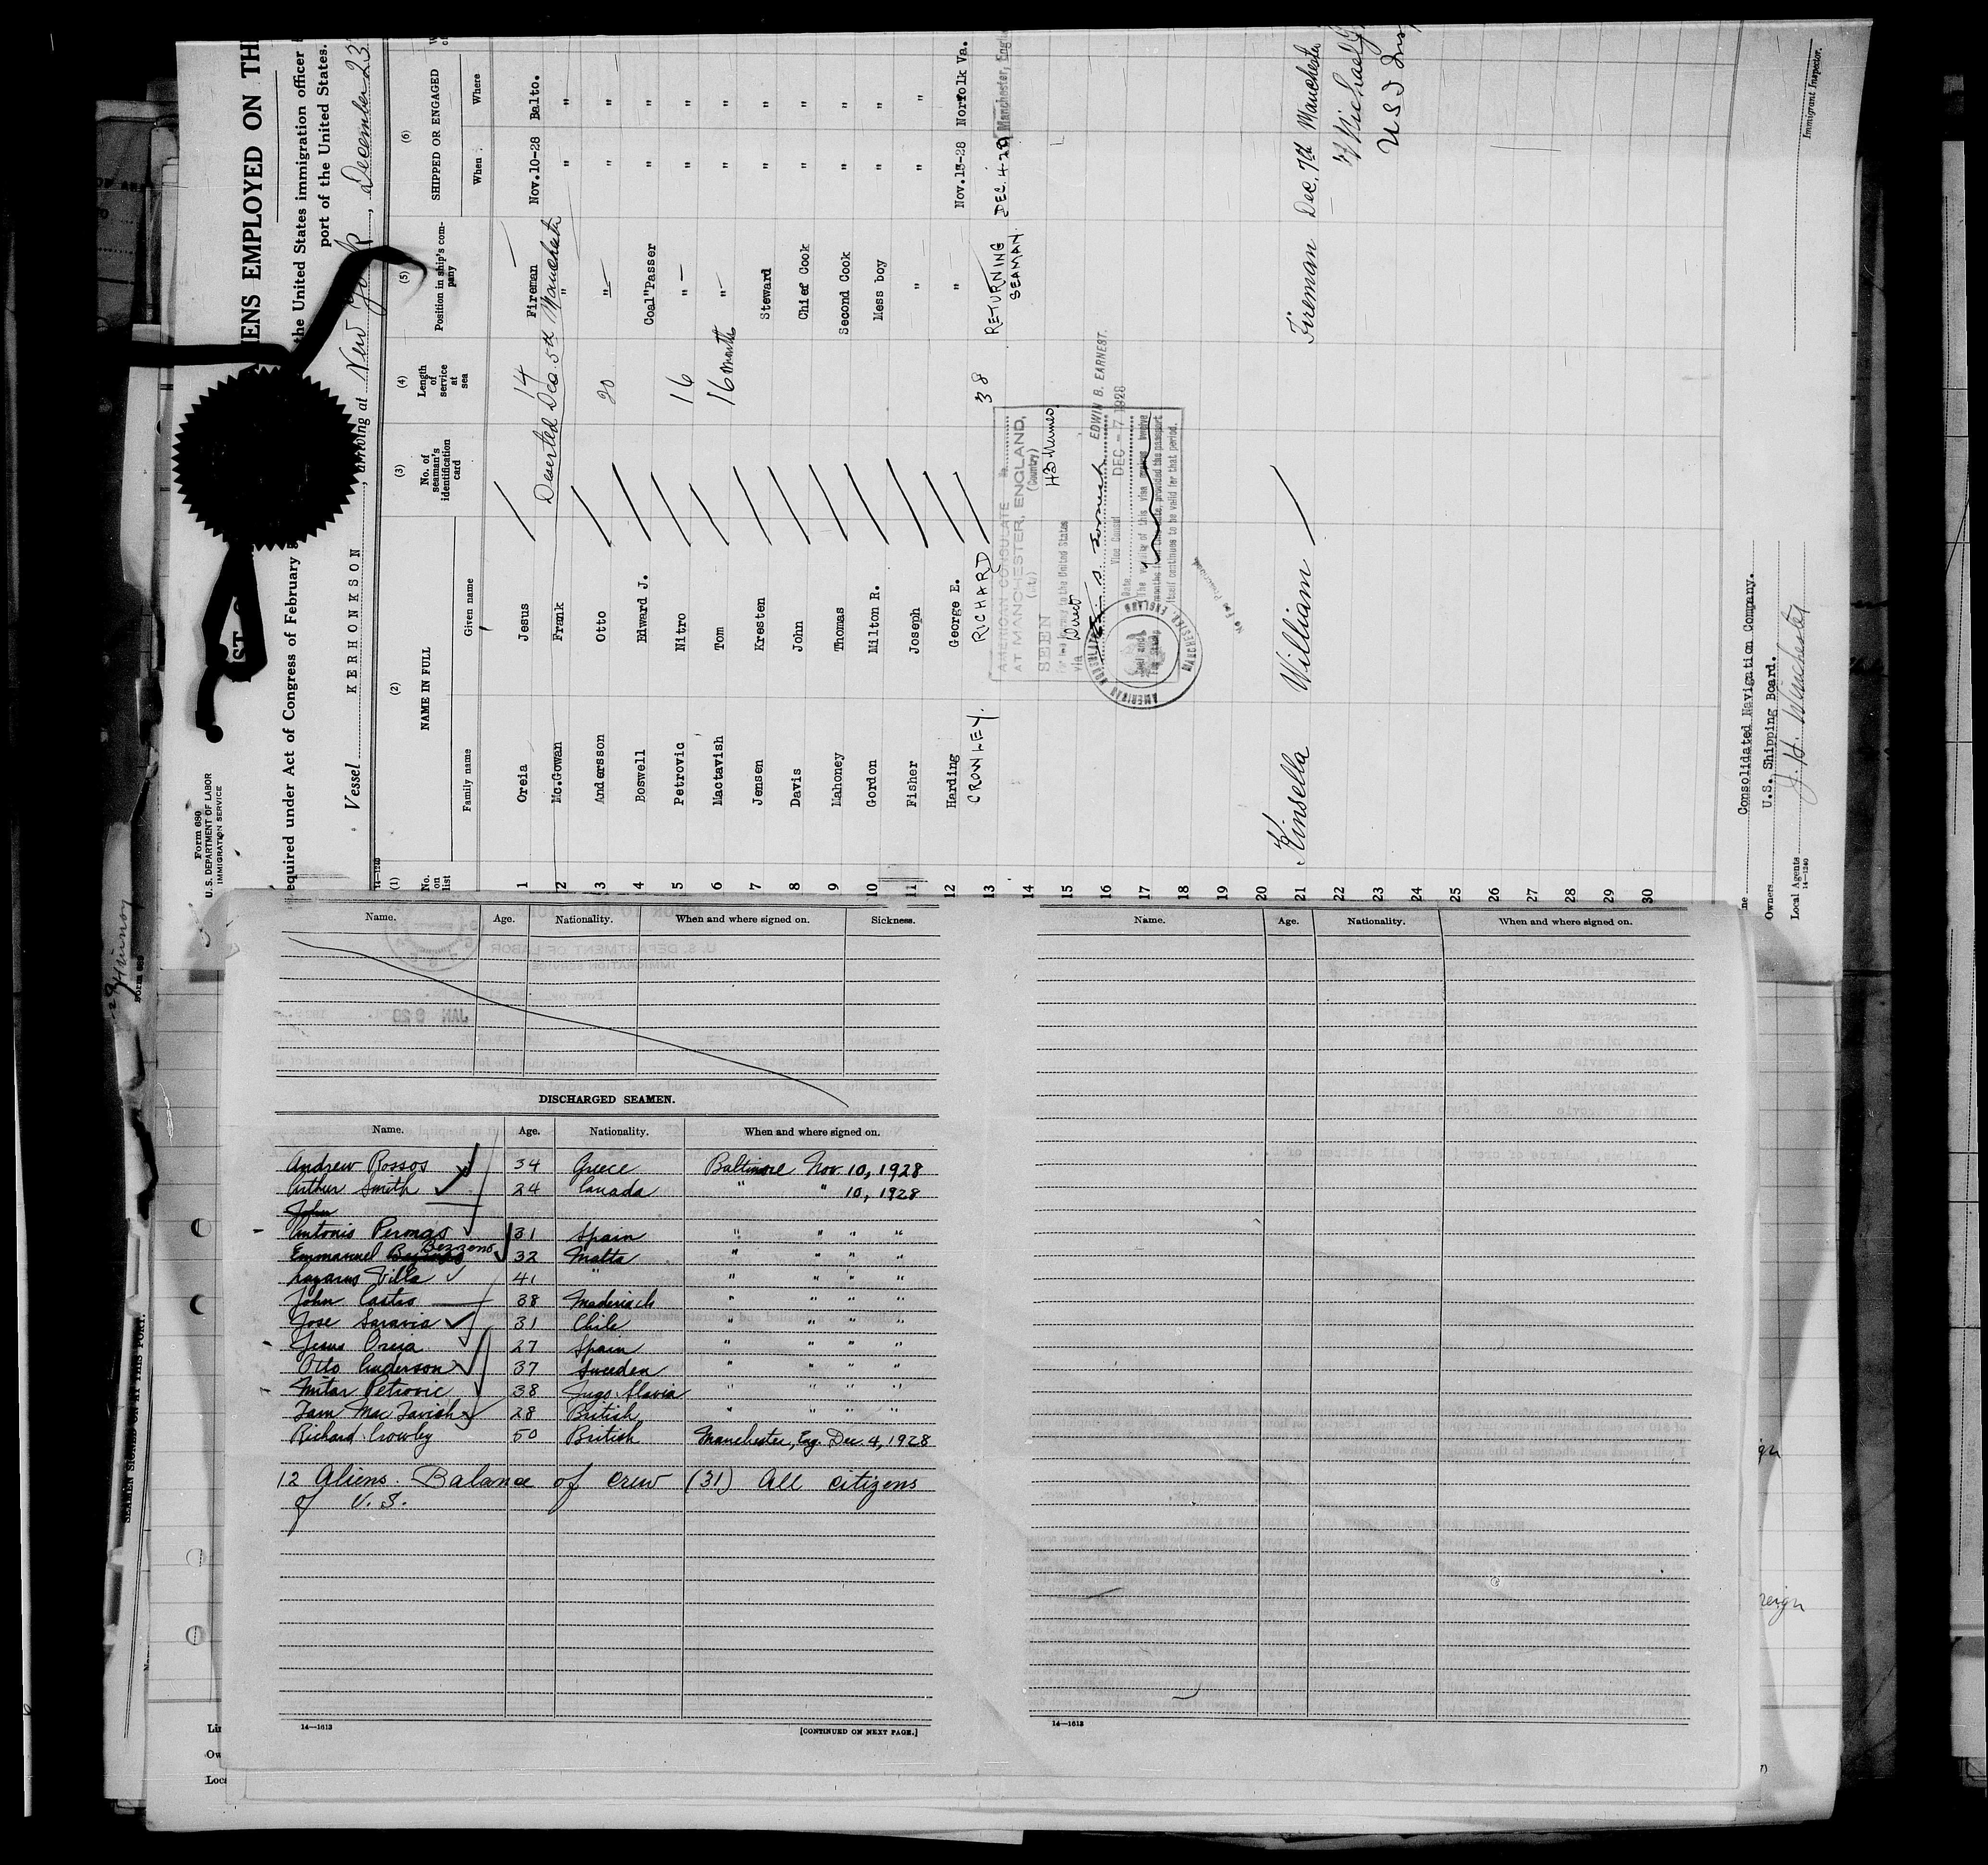 Form 680
U. S. DEPARTMENT OF LABOR
IMMIGRATION SERVICE
ENS EMPLOYED ON TH
equired under Act of Congress of February
the United States immigration officer
port of the United States.
Vessel KERHONKSON, arriving at New York, December 23
14-1240
(1) (2) (3) (4) (5) (6)
No. on list NAME IN FULL No. of seaman's identification card Length of service at sea Position in ship's company SHIPPED OR ENGAGED
Family name Given name When Where
1 Oreia Jesus 14 Fireman Nov.10-28 Balto.
2 Mc.Gowan Frank Deserted Dec. 5th Manchester " " "
3 Anderson Otto 20 " " "
4 Boswell Edward J. Coal"Passer " "
5 Petrovic Nitro 16 " " "
6 Mactavish Tom 16 months " " "
7 Jensen Kresten Steward " "
8 Davis John Chief Cook " "
9 Mahoney Thomas Second Cook " "
10 Gordon Milton R. Mess boy " "
11 Fisher Joseph " " "
12 Harding George E. " Nov.13-28 Norfolk Va.
13 CROWLEY. RICHARD 38 RETURNING SEAMAN. DEC. 4-28 Manchester, Engl
14
15
16
17
18
19
20
21 Kinsella William Fireman Dec. 7th Manchester
22
23
24
25
26
27
28
29
30
AMERICAN CONSULATE
AT MANCHESTER, ENGLAND,
(Country)
SEEN
For the journey to the United States
via Direct
EDWIN B. EARNEST.
Vice Consul
Date DEC - 7 1928
The validity of this visa expires twelve
months from this date, provided the passport
itself continues to be valid for that period.
AMERICAN CONSULATE
MANCHESTER, ENGLAND
No Fee Prescribed
Consolidated Navigation Company.
Owners U.S. Shipping Board.
Local Agents J. H. Winchester
14-1240
Immigrant Inspector.
Name. Age. Nationality. When and where signed on. Sickness.
DISCHARGED SEAMEN.
Name. Age. Nationality. When and where signed on.
Andrew Rossos 34 Greece Baltimore Nov. 10, 1928
Arthur Smith 24 Canada " " 10, 1928
John
Antonio Peronas 31 Spain " " " "
Emmanuel Bezzeno 32 Malta " " " "
Lazarus Villa 41 " " " " "
John Castro 38 Maderia Is " " " "
Jose Saravia 31 Chile " " " "
Jesus Oreia 27 Spain " " " "
Otto Anderson 37 Sweden " " " "
Mitar Petrovic 38 Jugo-Slavia " " " "
Tam MacTavish 28 British " " " "
Richard Crowley 50 British Manchester, Eng. Dec. 4, 1928
12 Aliens. Balance of crew (31) All citizens
of U. S.
14—1613
[CONTINUED ON NEXT PAGE.]
Name. Age. Nationality. When and where signed on.
14—1613